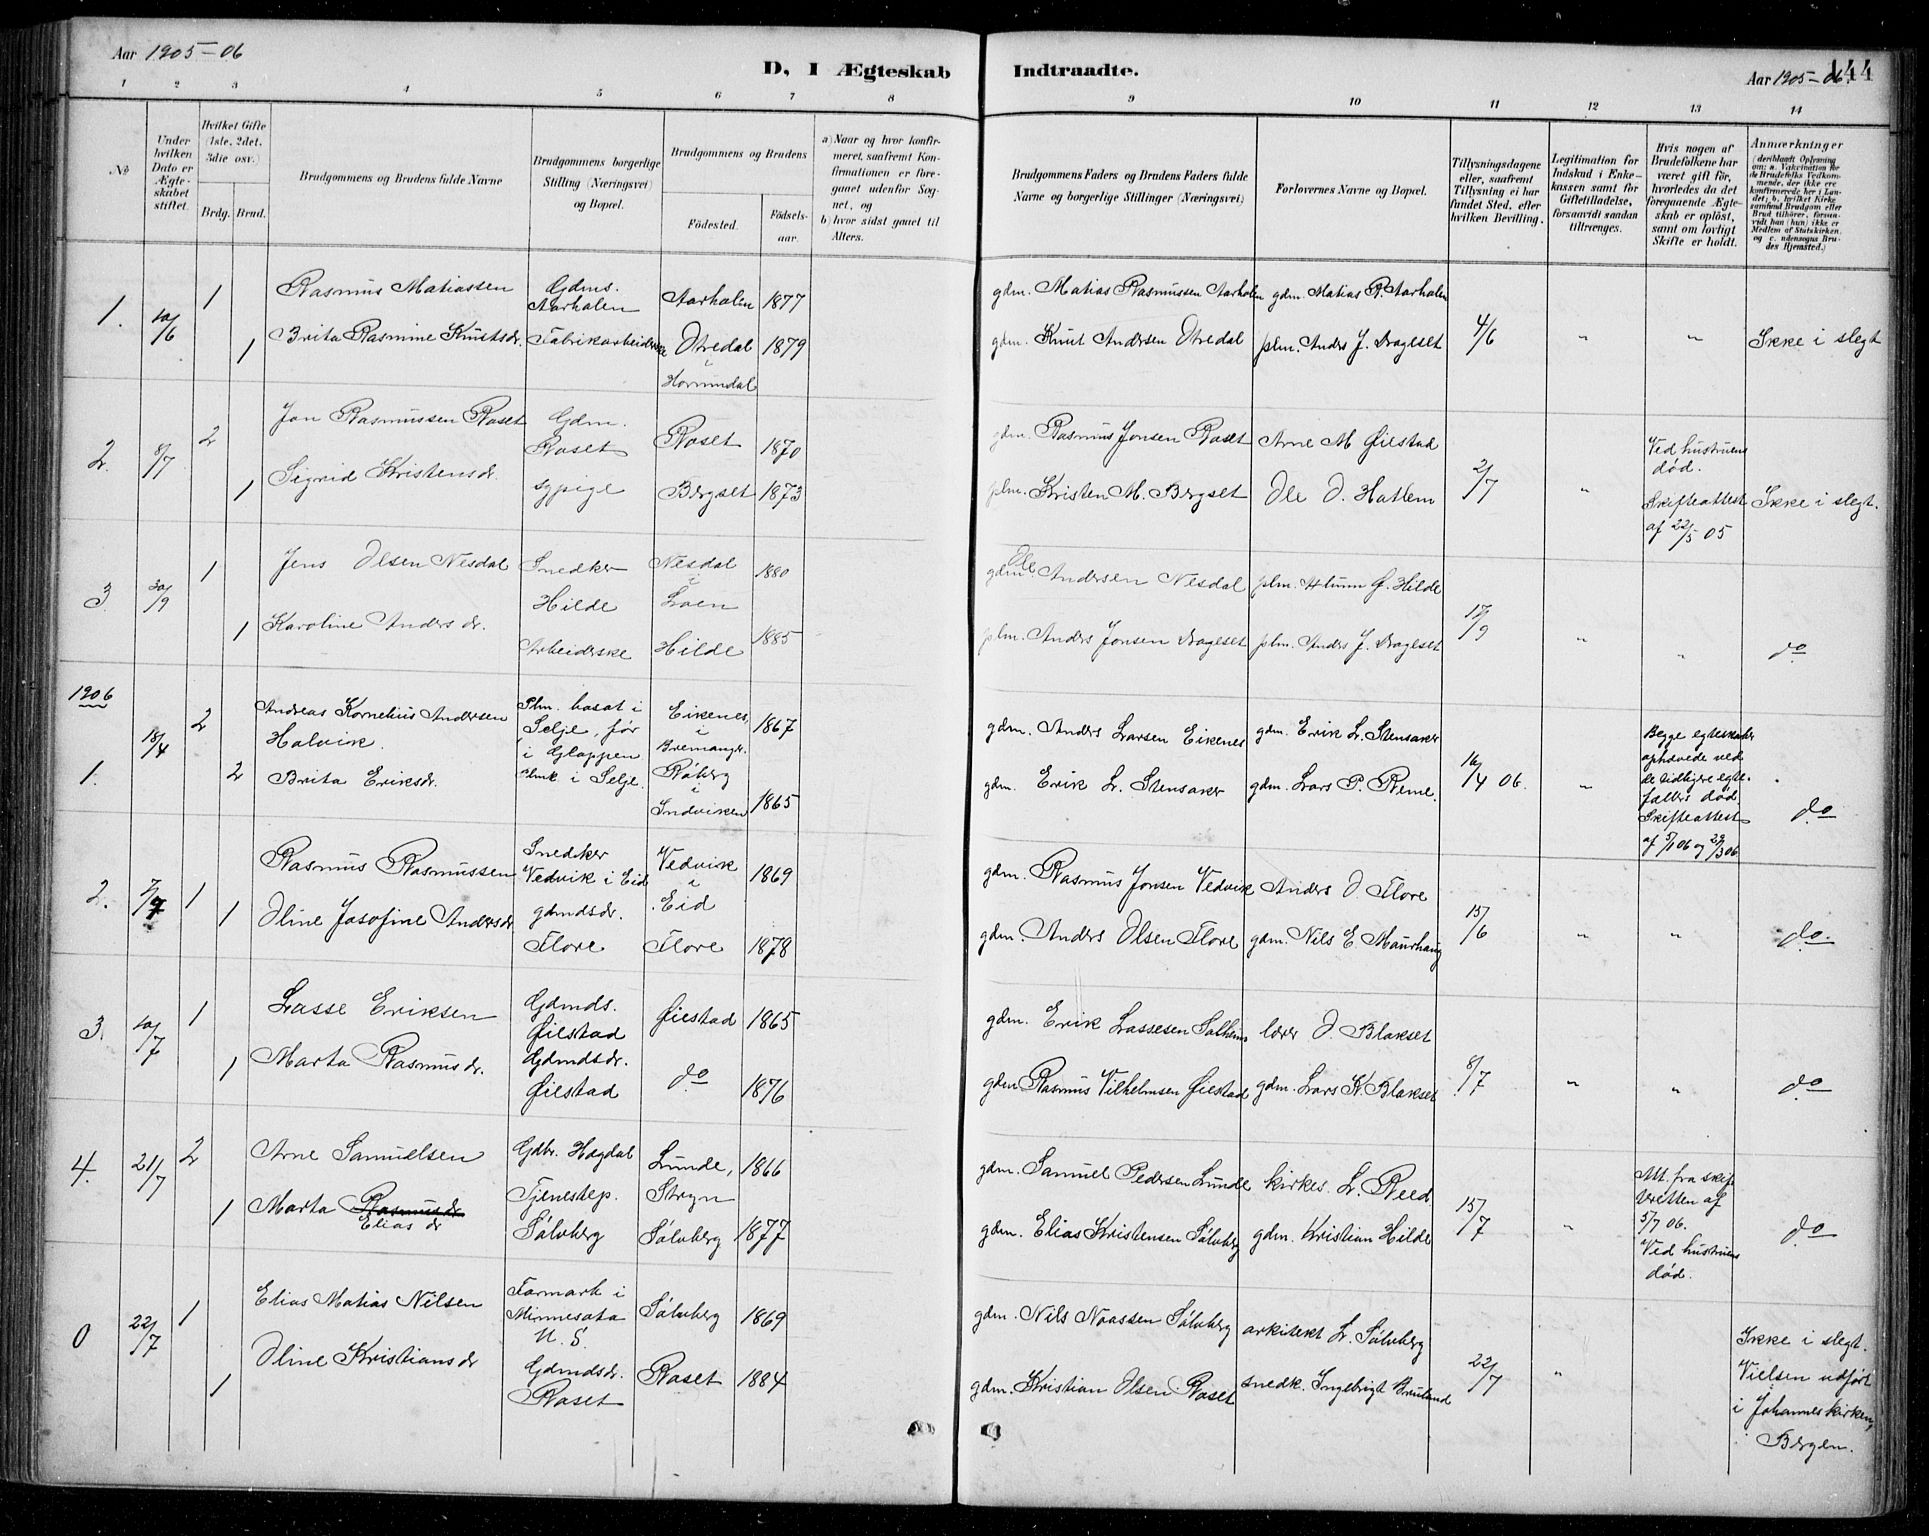 Aar 1905-06
D, I Ægteskab Indtraadte.
Aar 1905-06.
144
1 2 3 4 5 6 7 8 9 10 11 12 13 14
No
Under hvilken Dato er Ægteskabet stiftet.
Hvilket Gifte (1ste, 2det, 3die osv.)
Brdg. Brud.
Brudgommens og Brudens fulde Navne
Brudgommens borgerlige Stilling (Næringsvei) og Bopæl.
Brudgommens og Brudens
Fødested.
Fødselsaar.
a) Naar og hvor konfirmeret, saafremt Konfirmationen er foregaaet udenfor Sognet, og
b) hvor sidst gaaet til Alters.
Brudgommens Faders og Brudens Faders fulde Navne og borgerlige Stillinger (Næringsvei)
Forlovernes Navne og Bopæl.
Tillysningsdagene eller, saafremt Tillysning ei har fundet Sted, efter hvilken Bevilling.
Legitimation for Indskud i Enkekassen samt for Giftetilladelse, forsaavidt saadan tiltrænges.
Hvis nogen af Brudefolkene har været gift før, hvorledes da det foregaaende Ægteskab er opløst, samt om lovligt Skifte er holdt.
Anmærkninger
(deriblandt Oplysning om: a. Vaccination for de Brudefolks Vedkommende, der ikke ere konfirmerede her i Landet; b. hvilket Kirkesamfund Brudgom eller Brud tilhører, forsaavidt han (hun) ikke er Medlem af Statskirken, og c. udensogns Brudes Hjemsted.)
1. 10/6 1 Rasmus Matiassen Gdms. Aarhalen Aarhalen 1877 gdm. Matias Rasmussen Aarhalen gdm. Matias R. Aarhalen
1 Brita Rasmine Knutsdr. Fabrikarbeiderske Otredal i Hornindal 1879 gdm. Knut Andersen Otredal plm. Anders J. Drageset 4/6 " " Ikke i slegt
2. 8/7 2 Jon Rasmussen Roset Gdm. Roset Roset 1870 gdm. Rasmus Jonsen Roset Arne M Øiestad Ved hustruens død.
1 Sigrid Kristensdr. sypige Bergset 1873 plm. Kristen M. Bergset Ole O. Hattem 2/7 " Skifteattest af 22/5 05 Ikke i slegt.
3. 30/9 1 Jens Olsen Nesdal Snedker Hilde Nesdal i Loen 1880 gdm. Ole Andersen Nesdal plm. G. Hilde
1 Karoline Anders dr. Arbeiderske Hilde 1885 plm. Anders Jonsen Drageset plm. Anders J. Drageset 17/9 " " do
1906
1. 18/4 2 Andreas Kornelius Andersen Halvik. Plm. bosat i Selje, før i Gloppen Eikenes i Bremanger 1867 gdm. Anders Larsen Eikenes gdm. Erik L. Stensaker Begge egteskaber ophævede ved de tidligere egtefællers død. Skifteattest af 5/1 06 og 23/3 06
2 Brita Eriksdr. Plmk i Selje Røberg i Indviken 1865 gdm. Erik L. Stensaker gdm. Lars P. Reme. 16/4 06. " do
2. 7/7 1 Rasmus Rasmussen Snedker Vedvik i Eid Vedvik i Eid 1869 gdm. Rasmus Jonsen Vedvik Anders O Flore
1 Oline Josofine Andersdr gdmdsdr. Flore Flore 1878 gdm. Anders Olsen Flore gdm. Nils E. Maurhaug 15/6 " " do.
3. 10/7 1 Lasse Eriksen Gdmds. Øiestad Øiestad 1865 gdm. Erik Lassesen Solheim lærer O Blakset
1 Marta Rasmusdr. Gdmdsdr. Øiestad do 1876 gdm Rasmus Vilhelmsen Øiestad gdm. Lars K. Blakset 8/7 " " do
4. 21/7 2 Arne Samuelsen Gdbr. Hogdal Lunde, Stryn 1866 gdm. Samuel Pedersen Lunde kirkes. L. Reed. Att. fra skifteretten af 5/7 06. Ved hustruens død.
1 Marta Rasmusdr Elias dr Tjenestep. Sølvberg Sølvberg 1877 gdm. Elias Kristensen Sølvberg gdm. Kristian Hilde 15/7 " do
0 22/7 1 Elias Matias Nilsen Farmark i Minnesota U. S. Sølvberg 1869 gdm. Nils Noassen Sølvberg arkitekt L. Sølvberg
1 Oline Kristians dr Gdmdsdr. Roset Roset 1884 gdm. Kristian Olsen Roset snedk. Ingebrigt 22/7 " Ikke i slegt. Vielsen udført i Johanneskirken, i Bergen.